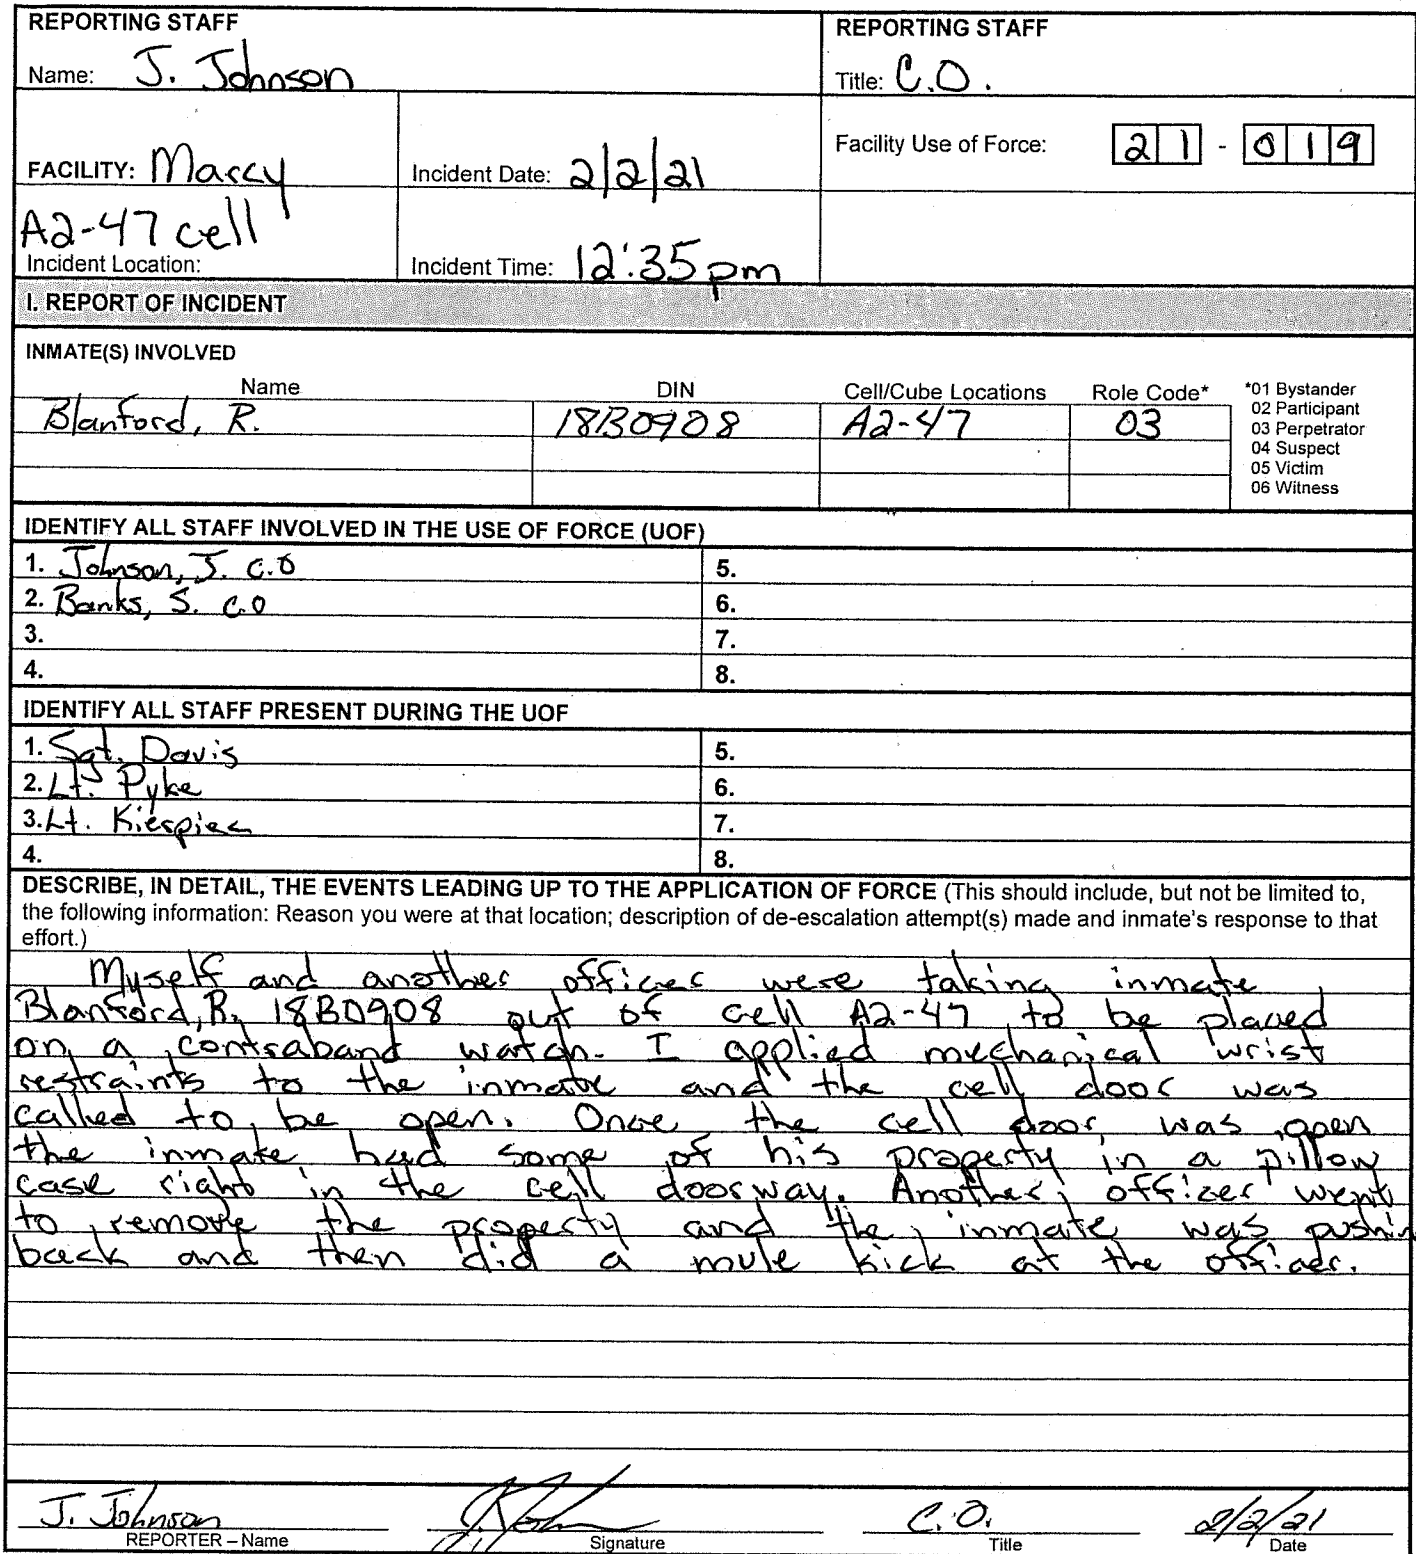 REPORTING STAFF
Name: J. Johnson
REPORTING STAFF
Title: C.O.
FACILITY: Marcy
Incident Date: 2/2/21
Facility Use of Force: 21 - 019
A2-47 cell
Incident Location:
Incident Time: 12:35 pm
I. REPORT OF INCIDENT
INMATE(S) INVOLVED
Name DIN Cell/Cube Locations Role Code*
Blanford, R. 18B0908 A2-47 03
*01 Bystander
02 Participant
03 Perpetrator
04 Suspect
05 Victim
06 Witness
IDENTIFY ALL STAFF INVOLVED IN THE USE OF FORCE (UOF)
1. Johnson, J. C.O 5.
2. Banks, S. C.O 6.
3. 7.
4. 8.
IDENTIFY ALL STAFF PRESENT DURING THE UOF
1. Sgt. Davis 5.
2. Lt. Pyke 6.
3. Lt. 7.
4. 8.
DESCRIBE, IN DETAIL, THE EVENTS LEADING UP TO THE APPLICATION OF FORCE (This should include, but not be limited to,
the following information: Reason you were at that location; description of de-escalation attempt(s) made and inmate's response to that
effort.)
Myself and another officer were taking inmate
Blanford, R. 18B0908 out of cell A2-47 to be placed
on a contraband watch. I applied mechanical wrist
restraints to the inmate and the cell door was
called to be open. Once the cell door was open
the inmate had some of his property in a pillow
case right in the cell doorway. Another officer went
to remove the property and the inmate was pushin
back and then did a mule kick at the officer.
J. Johnson C.O. 2/2/21
REPORTER – Name Signature Title Date